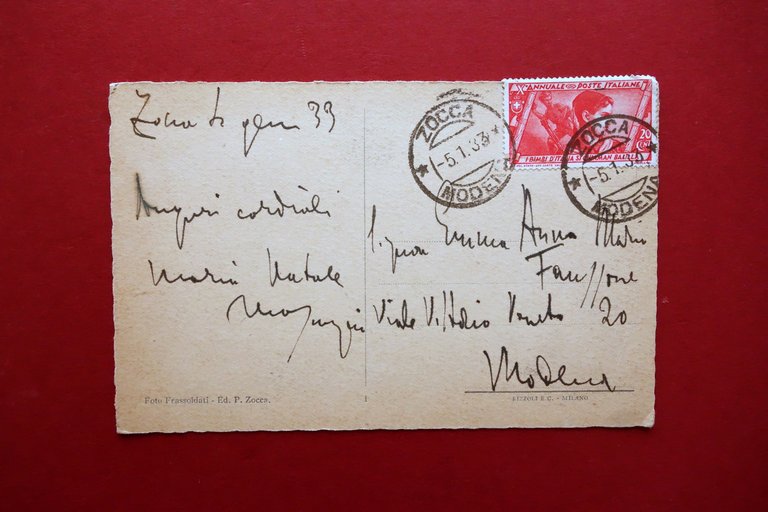 Zocca 5 genn 33
Auguri cordiali
Maria Natale
Signora Emma Anna Maria
Viale Vittorio Veneto 20
Modena
Foto Frassoldati - Ed. P. Zocca.
1
RIZZOLI E C. - MILANO
ZOCCA
-5.1.33
MODENA
X ANNUALE POSTE ITALIANE
20
I BIMBI D'ITALIA SI CHIAMAN BALILLA
ZOCCA
-5.1.33
MODENA